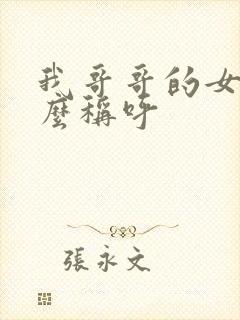 我哥哥的女
麼稱呼
張永文